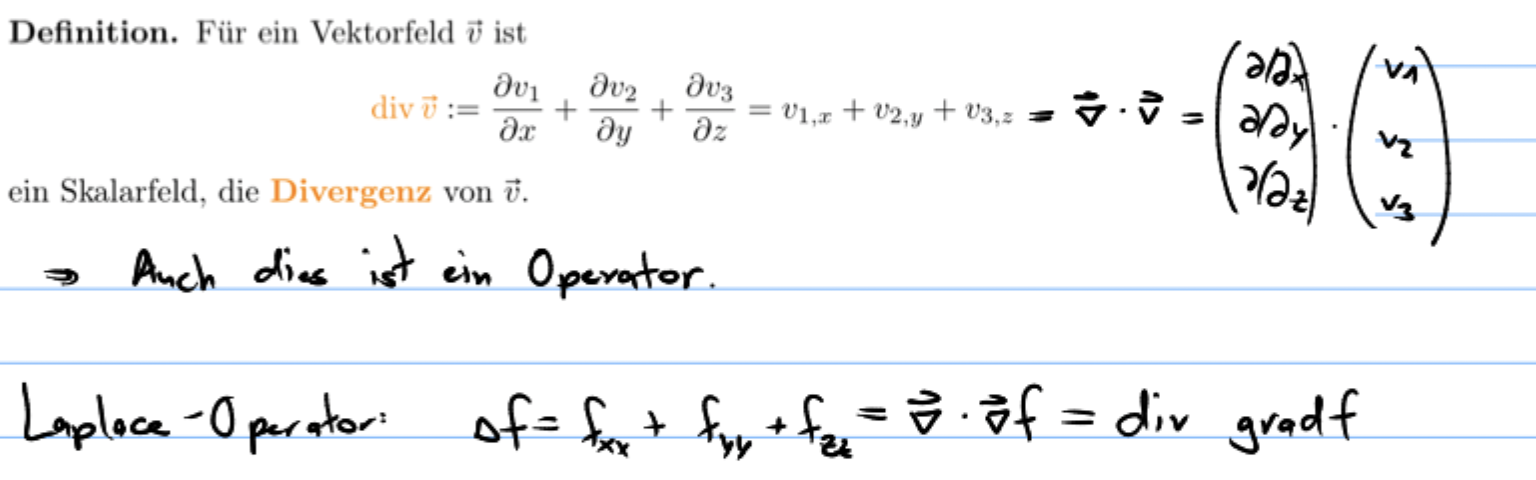 Definition. Für ein Vektorfeld $\vec{v}$ ist
$\operatorname{div} \vec{v} := \frac{\partial v_1}{\partial x} + \frac{\partial v_2}{\partial y} + \frac{\partial v_3}{\partial z} = v_{1,x} + v_{2,y} + v_{3,z} = \vec{\nabla} \cdot \vec{v} = \begin{pmatrix} \partial/\partial x \\ \partial/\partial y \\ \partial/\partial z \end{pmatrix} \cdot \begin{pmatrix} v_1 \\ v_2 \\ v_3 \end{pmatrix}$
ein Skalarfeld, die Divergenz von $\vec{v}$.
⇒ Auch dies ist ein Operator.
Laplace-Operator: $\Delta f = f_{xx} + f_{yy} + f_{zz} = \vec{\nabla} \cdot \vec{\nabla} f = \operatorname{div} \operatorname{grad} f$